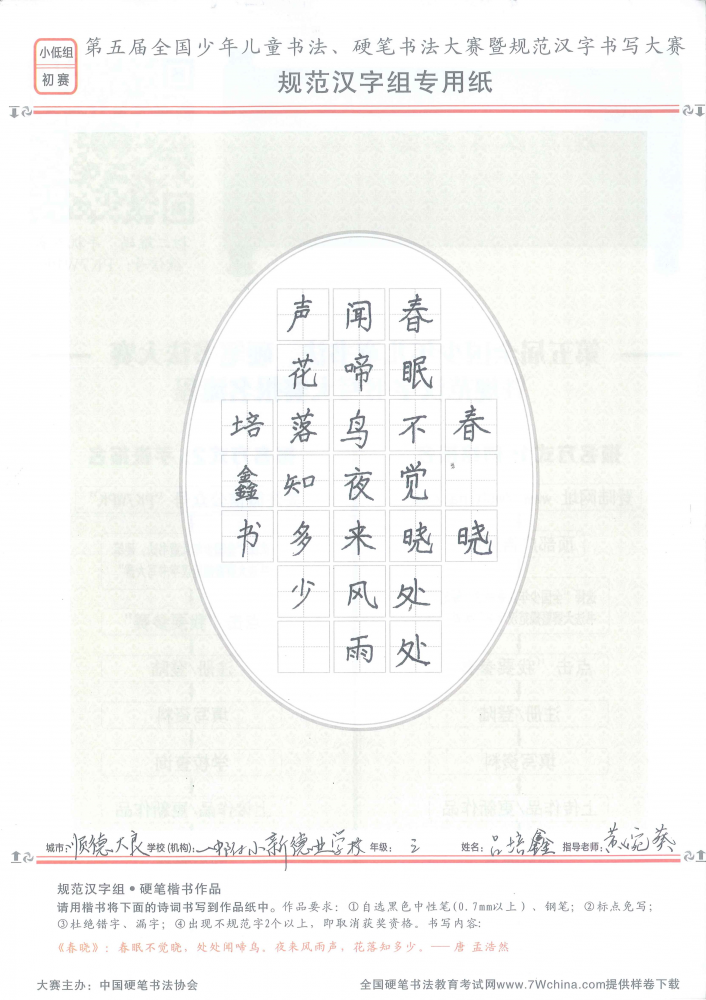 小低组
初赛
第五届全国少年儿童书法、硬笔书法大赛暨规范汉字书写大赛
规范汉字组专用纸
春晓
春眠不觉晓处处
闻啼鸟夜来风雨
声花落知多少
培鑫书
城市：顺德大良 学校(机构)： 年级：三 姓名：吕培鑫 指导老师：黄婉葵
规范汉字组•硬笔楷书作品
请用楷书将下面的诗词书写到作品纸中。作品要求：①自选黑色中性笔(0.7mm以上)、钢笔；②标点免写；
③杜绝错字、漏字；④出现不规范字2个以上，即取消获奖资格。书写内容：
《春晓》：春眠不觉晓，处处闻啼鸟。夜来风雨声，花落知多少。——唐 孟浩然
大赛主办：中国硬笔书法协会 全国硬笔书法教育考试网www.7Wchina.com提供样卷下载